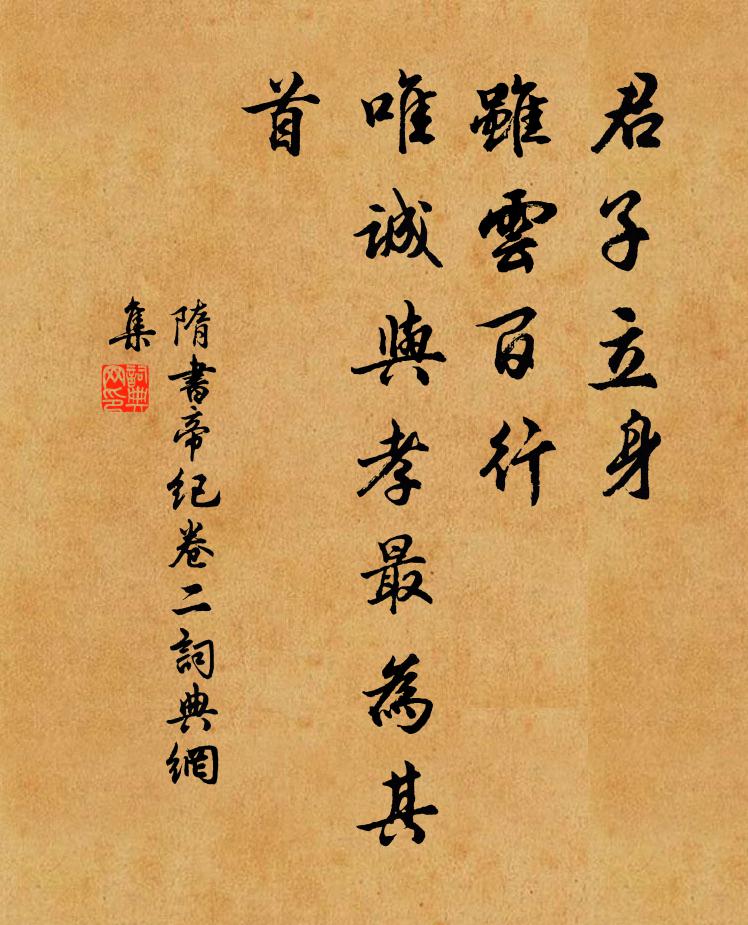 君子立身
雖雲百行
唯誠與孝最為其
首
隋書帝紀卷二詞典網
集
詞典
网印